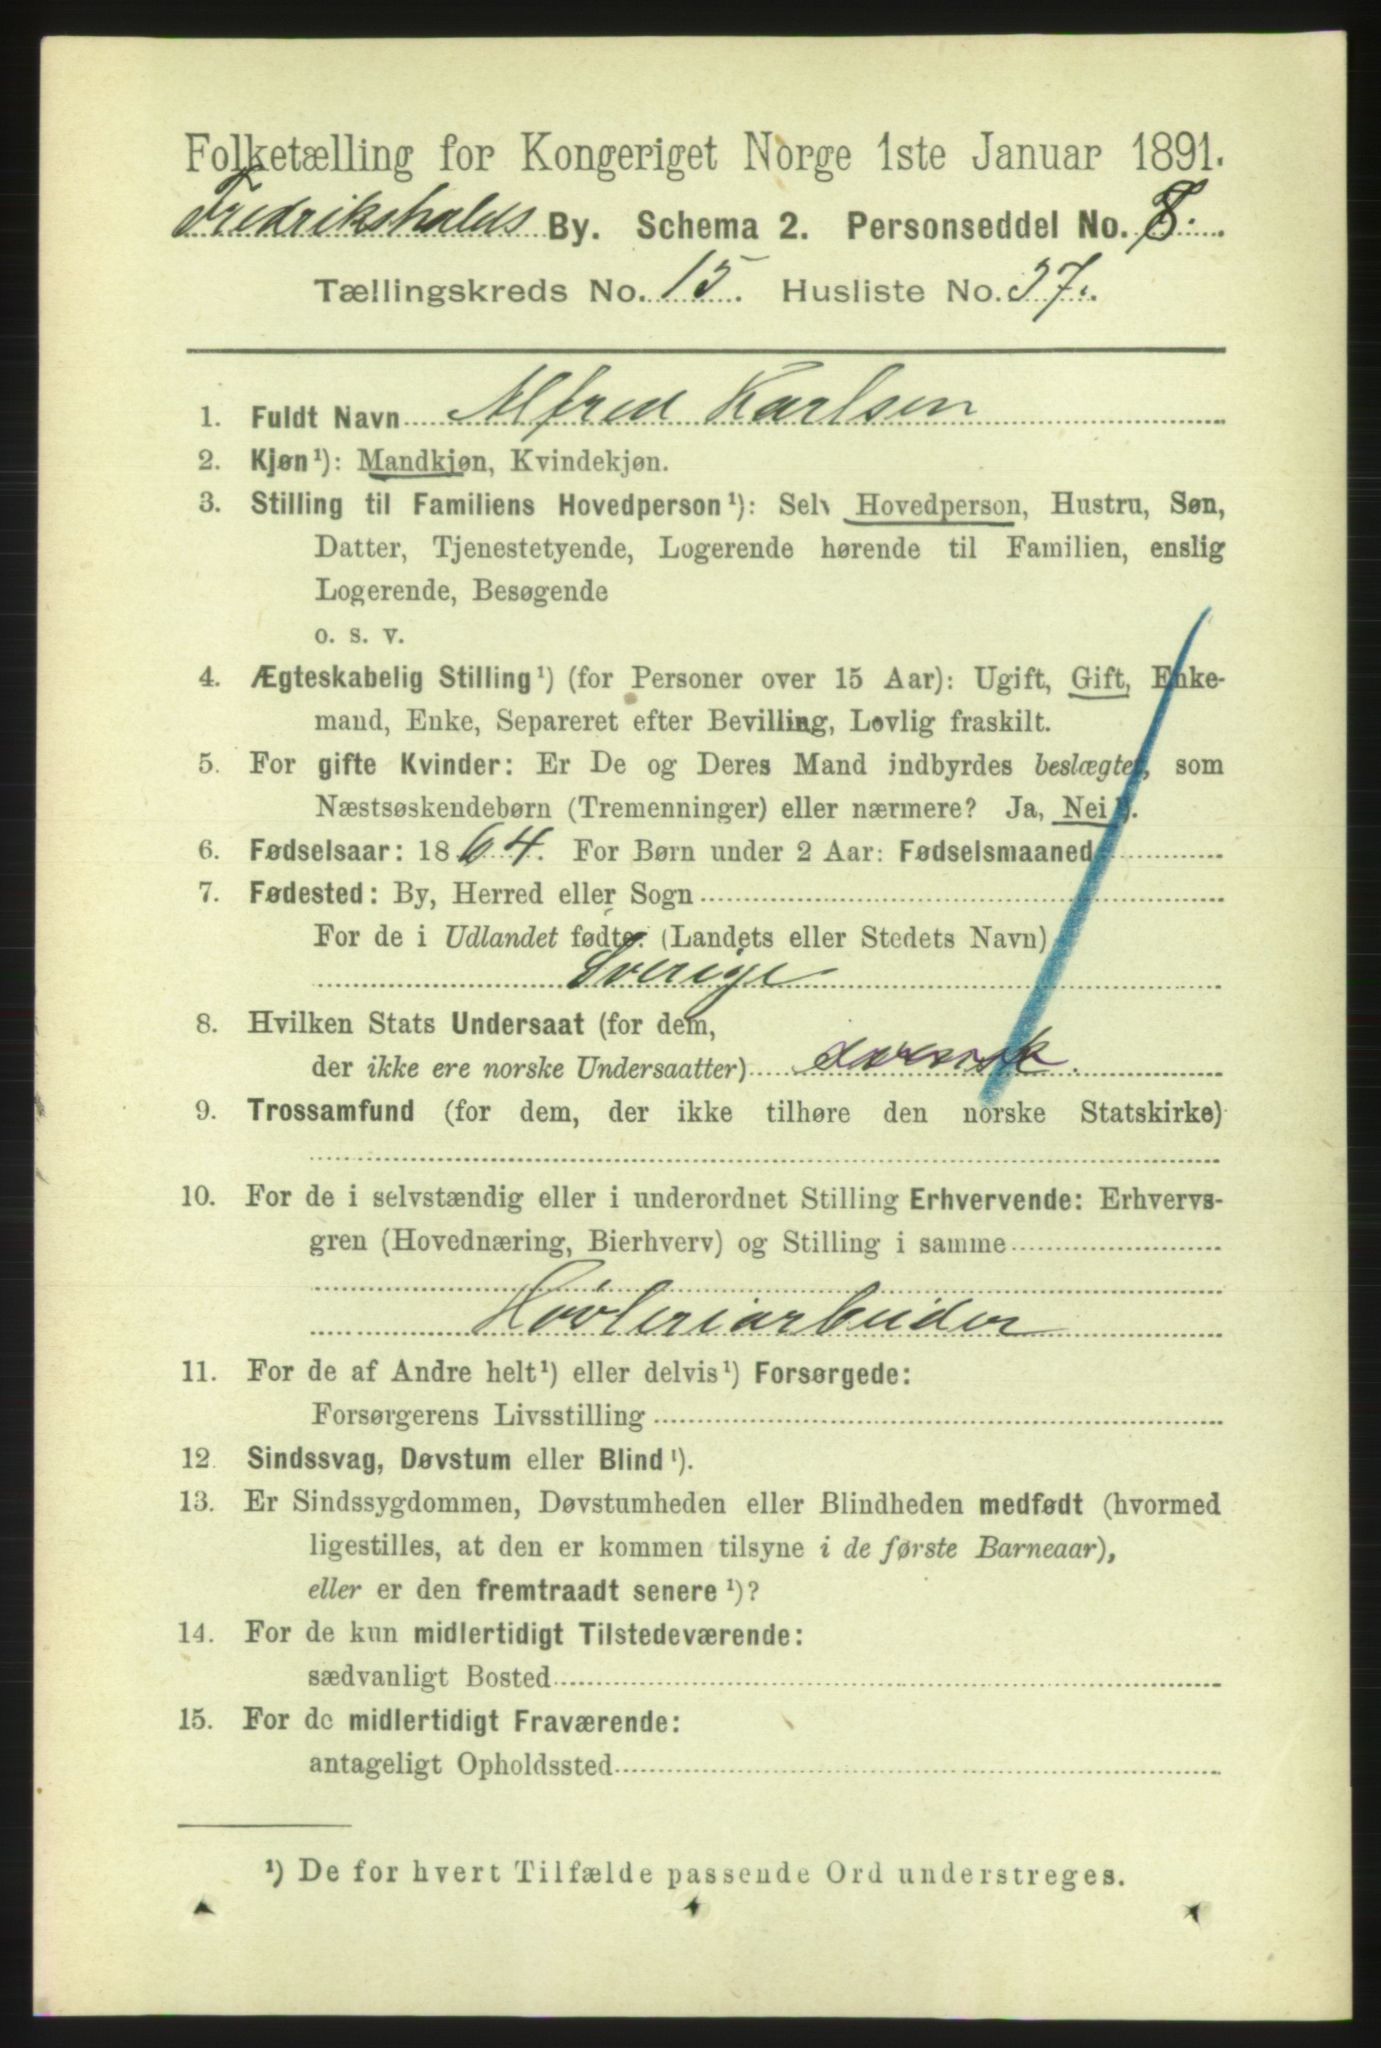 Folketælling for Kongeriget Norge 1ste Januar 1891.
Fredrikshalds By. Schema 2. Personseddel No. 8.
Tællingskreds No. 15. Husliste No. 37.
1. Fuldt Navn Alfred Karlsen
2. Kjøn¹): Mandkjøn, Kvindekjøn.
3. Stilling til Familiens Hovedperson¹): Selv Hovedperson, Hustru, Søn,
Datter, Tjenestetyende, Logerende hørende til Familien, enslig
Logerende, Besøgende
o. s. v.
4. Ægteskabelig Stilling¹) (for Personer over 15 Aar): Ugift, Gift, Enke-
mand, Enke, Separeret efter Bevilling, Lovlig fraskilt.
5. For gifte Kvinder: Er De og Deres Mand indbyrdes beslægtet, som
Næstsøskendebørn (Tremenninger) eller nærmere? Ja, Nei¹).
6. Fødselsaar: 1864. For Børn under 2 Aar: Fødselsmaaned
7. Fødested: By, Herred eller Sogn
For de i Udlandet fødte: (Landets eller Stedets Navn)
Sverige
8. Hvilken Stats Undersaat (for dem,
der ikke ere norske Undersaatter) svensk.
9. Trossamfund (for dem, der ikke tilhøre den norske Statskirke)
10. For de i selvstændig eller i underordnet Stilling Erhvervende: Erhvervs-
gren (Hovednæring, Bierhverv) og Stilling i samme
Høvleriarbeider
11. For de af Andre helt¹) eller delvis¹) Forsørgede:
Forsørgerens Livsstilling
12 Sindssvag, Døvstum eller Blind¹).
13. Er Sindssygdommen, Døvstumheden eller Blindheden medfødt (hvormed
ligestilles, at den er kommen tilsyne i de første Barneaar),
eller er den fremtraadt senere¹)?
14. For de kun midlertidigt Tilstedeværende:
sædvanligt Bosted
15. For de midlertidigt Fraværende:
antageligt Opholdssted
¹) De for hvert Tilfælde passende Ord understreges.